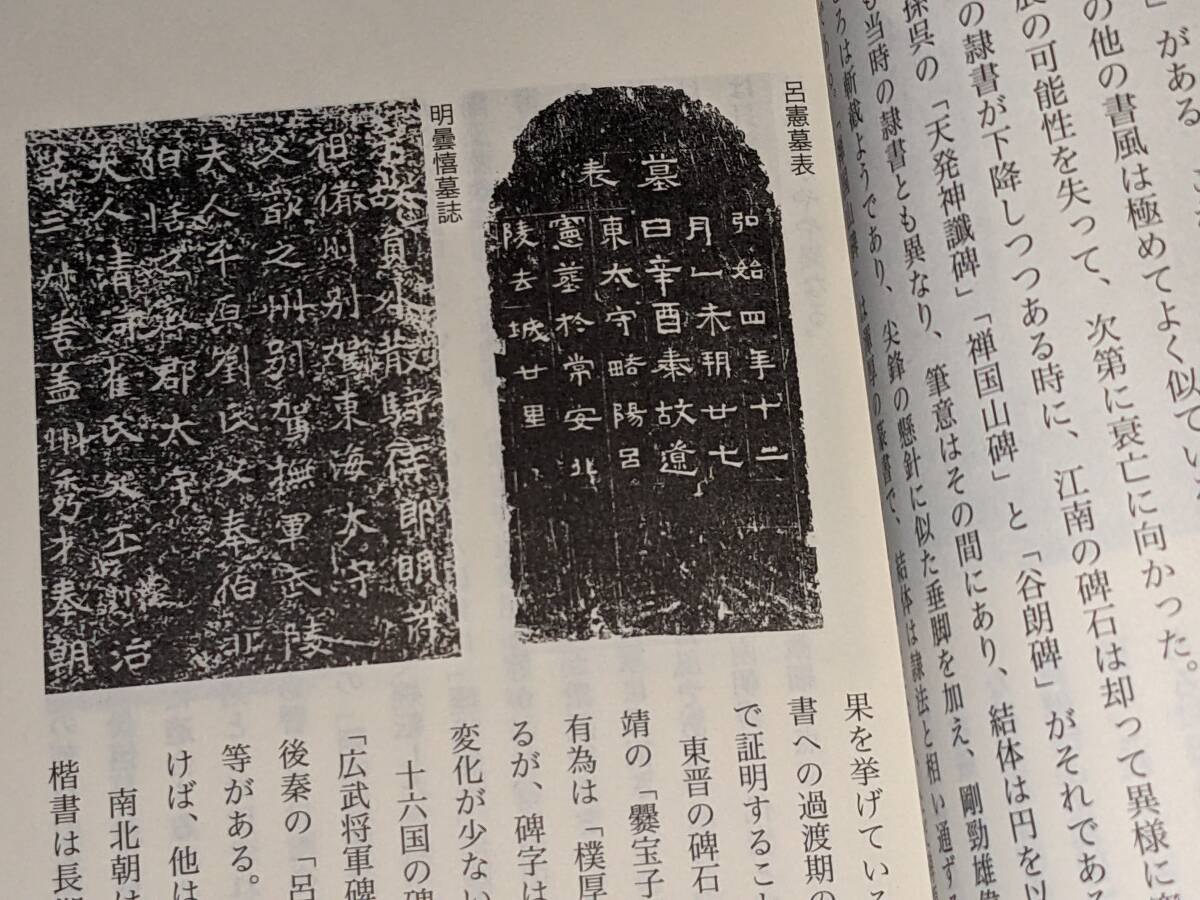 」がある
の他の書風は極めてよく似てい
展の可能性を失って、次第に衰亡に向かった。
の隷書が下降しつつある時に、江南の碑石は却って異様に
孫呉の「天発神讖碑」「禅国山碑」と「谷朗碑」がそれである
も当時の隷書とも異なり、筆意はその間にあり、結体は円を以
ろは斬截ようであり、尖鋒の懸針に似た垂脚を加え、剛勁雄偉
結体は隷法と相い通ずる
呂憲墓表
墓
表
弘始四年十二
月乙未朔廿七
日辛酉秦故遼
東太守略陽呂
憲墓於常安北
陵去城廿里
明曇憘墓誌
宋故員外散騎侍郎明府
伯脩州別駕東海太守
父歆之州別駕撫軍武陵
夫人平原劉氏父奉伯北
伯恬之齊郡太守
夫人清河崔氏父丕 治
第三叔善蓋州秀才奉朝
果を挙げている
書への過渡期の
で証明するこ
東晋の碑石
靖の「爨宝子
有為は「樸厚
るが、碑字は
変化が少ない
十六国の碑
「広武将軍碑
後秦の「呂
等がある。
けば、他は
南北朝は
楷書は長